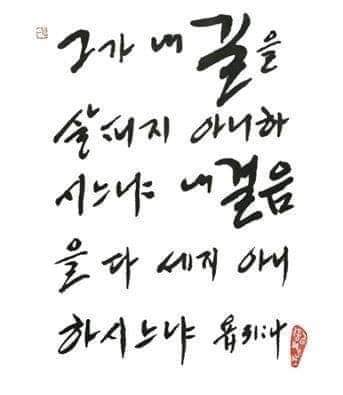 그가 내 길을
살피지 아니하
시느냐 내 걸음
을 다 세지 아니
하시느냐 욥 31:4